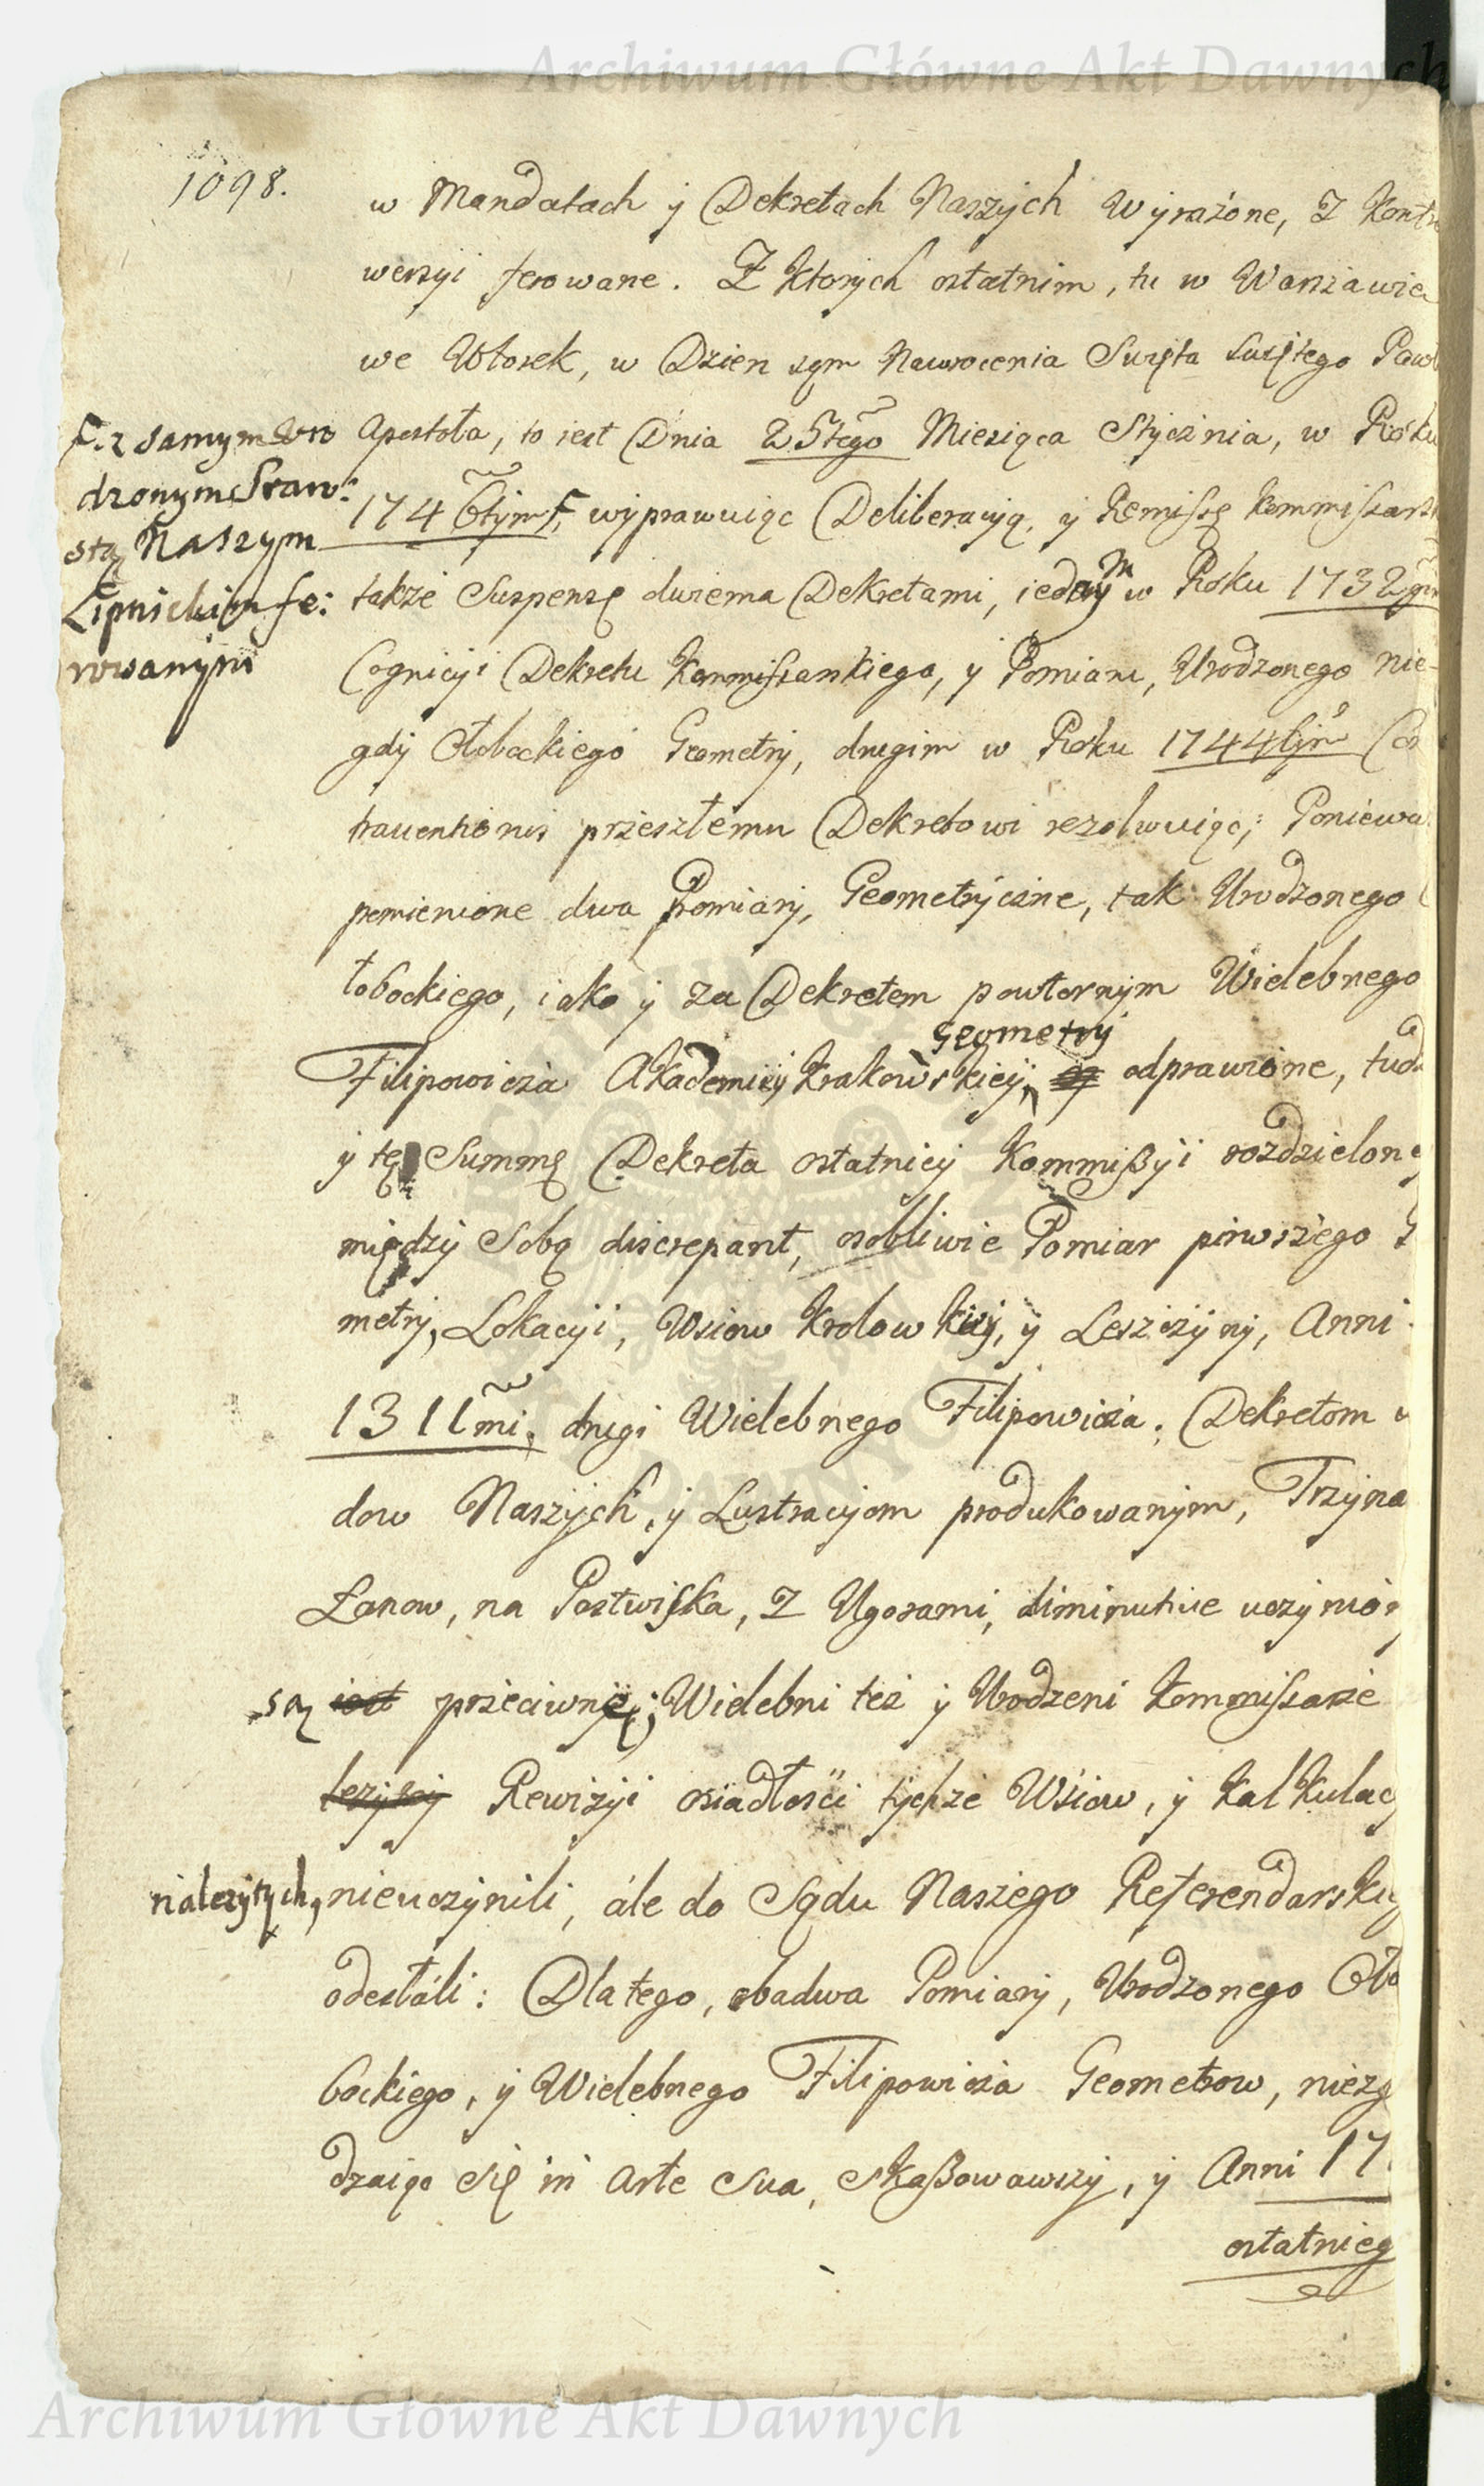 Archiwum Główne Akt Dawnych
1098.
w Mandatach y Dekretach Naszych Wyrażone, z Kontr
wersyi ferowane. Z Ktorych ostatnim, tu w Warszawie
we Wtorek, w Dzien sam Nawrocenia Swięta Swiętego Paw
Apostoła, to iest Dnia 25tego Miesiąca Stycznia, w Roku
F. z samym Uro
dzonym
Naszym
Lipnickim fe:
rowanym
1746tym F, wyprawuiąc Deliberacyą, y Remissę Kommissars
także Suspensę dwiema Dekretami, iednym w Roku 1732gim
Cognicyi Dekretu Kommissarskiego, y Pomiaru, Urodzonego nie-
gdy Ołobockiego Geometry, drugim w Roku 1744tym Con
traventionis przeszłemu Dekretowi rezolwuiąc; Poniewa
pomienione dwa Pomiary, Geometryczne, tak Urodzonego O
łobockiego, iako y za Dekretem powtornym Wielebnego
Geometry
Filipowicza Akademiiy Krakowskiey, odprawione, tud
y tę Summę Dekreta ostatniey Kommißyi rozdzielone
między Sobą discrepant, osobliwie Pomiar pirwszego G
metry, Lokacyi, Wsiow Krolowkiey, y Leszczyny, Anni
1311mi, drugi Wielebnego Filipowicza; Dekretom
dow Naszych, y Lustracyom produkowanym, Trzyna
Łanow, na Pastwiska, z Ugorami, diminutive uczynion
są iest przeciwne; Wielebni też y Urodzeni Kommissarze
Rewizyi osiadłości tychże Wsiow, y Kalkulacy
należytych, nieuczynili, ále do Sądu Naszego Referendarskie
odesłáli: Dlatego, obadwa Pomiary, Urodzonego Oło
bockiego, y Wielebnego Filipowicza Geometrow, niezg
dzaiąc się in Arte Sua, skaßowawszy, y Anni 17
ostatnieg
Archiwum Główne Akt Dawnych